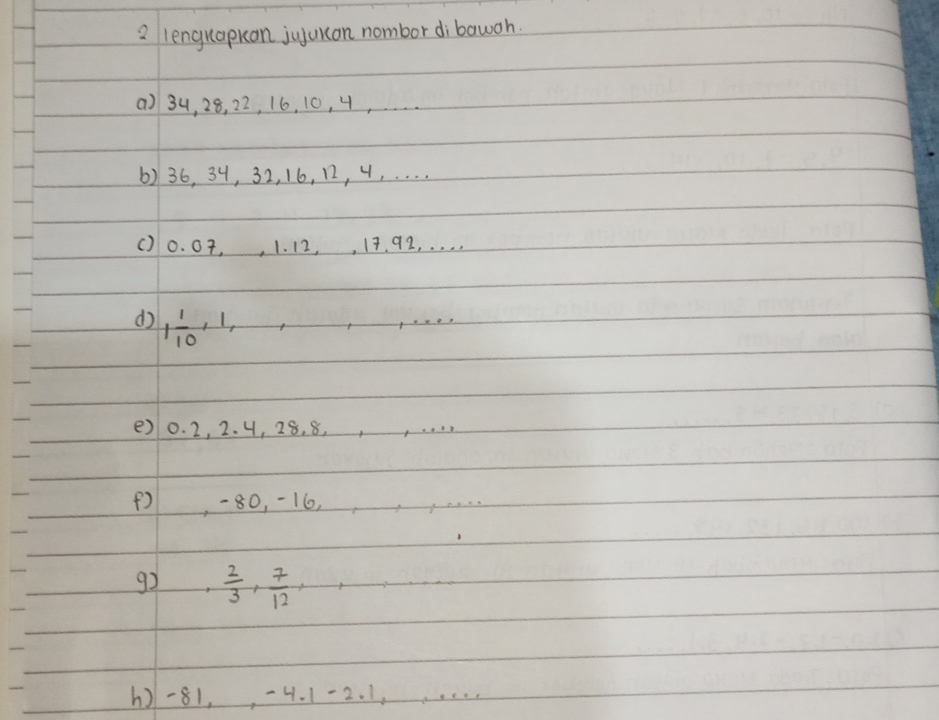 2 lengkapkan jujukan nombor di bawah.
a) 34, 28, 22, 16, 10, 4, ....
b) 36, 34, 32, 16, 12, 4, ....
c) 0.07, , 1.12, , 17.92, ....
d) 1 1/10, 1, , , , ....
e) 0.2, 2.4, 28.8, , , ....
f) , -80, -16, , , , ....
g) , 2/3, 7/12, , , ....
h) -81, , -4.1 -2.1, , ....